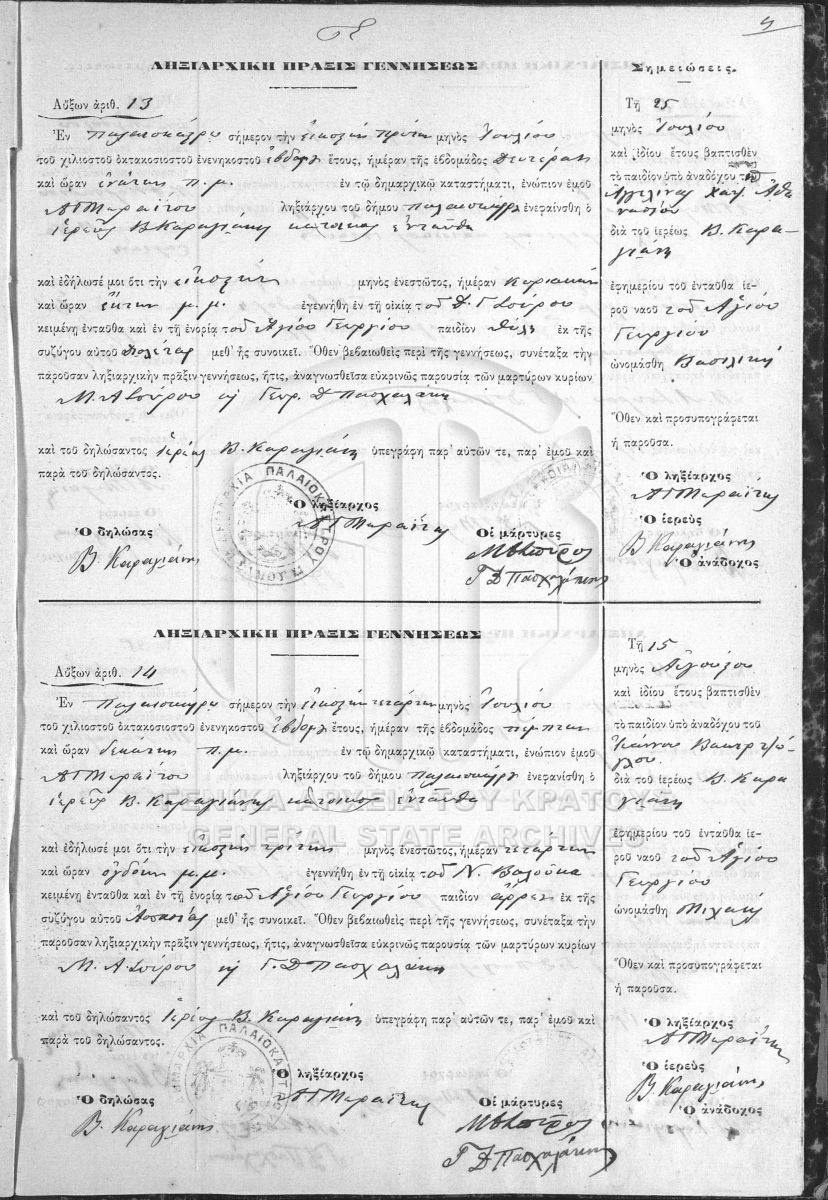 9
ΛΗΞΙΑΡΧΙΚΗ ΠΡΑΞΙΣ ΓΕΝΝΗΣΕΩΣ
Αὔξων ἀριθ. 13
Ἐν Παλαιοκάστρῳ σήμερον τὴν εἰκοστὴν πρώτην μηνὸς Ἰουλίου
τοῦ χιλιοστοῦ ὀκτακοσιοστοῦ ἐνενηκοστοῦ ἑβδόμου ἔτους, ἡμέραν τῆς ἑβδομάδος Δευτέραν
καὶ ὥραν ἐνάτην π.μ. ἐν τῷ δημαρχικῷ καταστήματι, ἐνώπιον ἐμοῦ
ληξιάρχου τοῦ δήμου Παλαιοκάστρου ἐνεφανίσθη ὁ
ἱερεὺς Β. Καραγιάνης κάτοικος ἐνταῦθα
καὶ ἐδήλωσέ μοι ὅτι τὴν εἰκοστὴν μηνὸς ἐνεστῶτος, ἡμέραν Κυριακὴν
καὶ ὥραν ἕκτην μ.μ. ἐγεννήθη ἐν τῇ οἰκίᾳ τοῦ Δ. Γ. Σούρου
κειμένῃ ἐνταῦθα καὶ ἐν τῇ ἐνορίᾳ τοῦ Ἁγίου Γεωργίου παιδίον θῆλυ ἐκ τῆς
συζύγου αὐτοῦ μεθ' ἧς συνοικεῖ. Ὅθεν βεβαιωθεὶς περὶ τῆς γεννήσεως, συνέταξα τὴν
παροῦσαν ληξιαρχικὴν πρᾶξιν γεννήσεως, ἥτις, ἀναγνωσθεῖσα εὐκρινῶς παρουσίᾳ τῶν μαρτύρων κυρίων
Μ. Α. Σούρου καὶ Γεωρ. Δ. Πασχαλάκη
καὶ τοῦ δηλώσαντος ἱερέως Β. Καραγιάνη ὑπεγράφη παρ' αὐτῶν τε, παρ' ἐμοῦ καὶ
παρὰ τοῦ δηλώσαντος.
Ὁ ληξίαρχος
Ὁ δηλώσας
Β. Καραγιάνης
Οἱ μάρτυρες
Γ Δ Πασχαλάκης
Σημειώσεις.
Τῇ 25
μηνὸς Ἰουλίου
καὶ ἰδίου ἔτους βαπτισθὲν
τὸ παιδίον ὑπὸ ἀναδόχου
Ἀγγελίνας Χατζ Ἀθα
νασίου
διὰ τοῦ ἱερέως Β. Καρα-
γιάνη
ἐφημερίου τοῦ ἐνταῦθα ἱε-
ροῦ ναοῦ τοῦ Ἁγίου
Γεωργίου
ὠνομάσθη Βασιλικὴ
Ὅθεν καὶ προσυπογράφεται
ἡ παροῦσα.
Ὁ ληξίαρχος
Ὁ ἱερεὺς
Β Καραγιάνης
Ὁ ἀνάδοχος
ΛΗΞΙΑΡΧΙΚΗ ΠΡΑΞΙΣ ΓΕΝΝΗΣΕΩΣ
Αὔξων ἀριθ. 14
Ἐν Παλαιοκάστρῳ σήμερον τὴν εἰκοστὴν τετάρτην μηνὸς Ἰουλίου
τοῦ χιλιοστοῦ ὀκτακοσιοστοῦ ἐνενηκοστοῦ ἑβδόμου ἔτους, ἡμέραν τῆς ἑβδομάδος πέμπτην
καὶ ὥραν δεκάτην π.μ. ἐν τῷ δημαρχικῷ καταστήματι, ἐνώπιον ἐμοῦ
ληξιάρχου τοῦ δήμου Παλαιοκάστρου ἐνεφανίσθη ὁ
ἱερεὺς Β. Καραγιάνης κάτοικος ἐνταῦθα
ΓΕΝΙΚΑ ΑΡΧΕΙΑ ΤΟΥ ΚΡΑΤΟΥΣ
GENERAL STATE ARCHIVES
καὶ ἐδήλωσέ μοι ὅτι τὴν εἰκοστὴν τρίτην μηνὸς ἐνεστῶτος, ἡμέραν τετάρτην
καὶ ὥραν ὀγδόην μ.μ. ἐγεννήθη ἐν τῇ οἰκίᾳ τοῦ Ν. Βαλούκα
κειμένῃ ἐνταῦθα καὶ ἐν τῇ ἐνορίᾳ τοῦ Ἁγίου Γεωργίου παιδίον ἄρρεν ἐκ τῆς
συζύγου αὐτοῦ Ἀσπασίας μεθ' ἧς συνοικεῖ. Ὅθεν βεβαιωθεὶς περὶ τῆς γεννήσεως, συνέταξα τὴν
παροῦσαν ληξιαρχικὴν πρᾶξιν γεννήσεως, ἥτις, ἀναγνωσθεῖσα εὐκρινῶς παρουσίᾳ τῶν μαρτύρων κυρίων
Μ. Α. Σούρου καὶ Γ. Δ. Πασχαλάκη
καὶ τοῦ δηλώσαντος ἱερέως Β. Καραγιάνη ὑπεγράφη παρ' αὐτῶν τε, παρ' ἐμοῦ καὶ
παρὰ τοῦ δηλώσαντος.
Ὁ ληξίαρχος
Ὁ δηλώσας
Β. Καραγιάνης
Οἱ μάρτυρες
Γ Δ Πασχαλάκης
Τῇ 15
μηνὸς Αὐγούστου
καὶ ἰδίου ἔτους βαπτισθὲν
τὸ παιδίον ὑπὸ ἀναδόχου τοῦ
Ἰωάννου
διὰ τοῦ ἱερέως Β. Καρα
γιάνη
ἐφημερίου τοῦ ἐνταῦθα ἱε-
ροῦ ναοῦ τοῦ Ἁγίου
Γεωργίου
ὠνομάσθη Μιχαὴλ
Ὅθεν καὶ προσυπογράφεται
ἡ παροῦσα.
Ὁ ληξίαρχος
Ὁ ἱερεὺς
Β. Καραγιάνης
Ὁ ἀνάδοχος